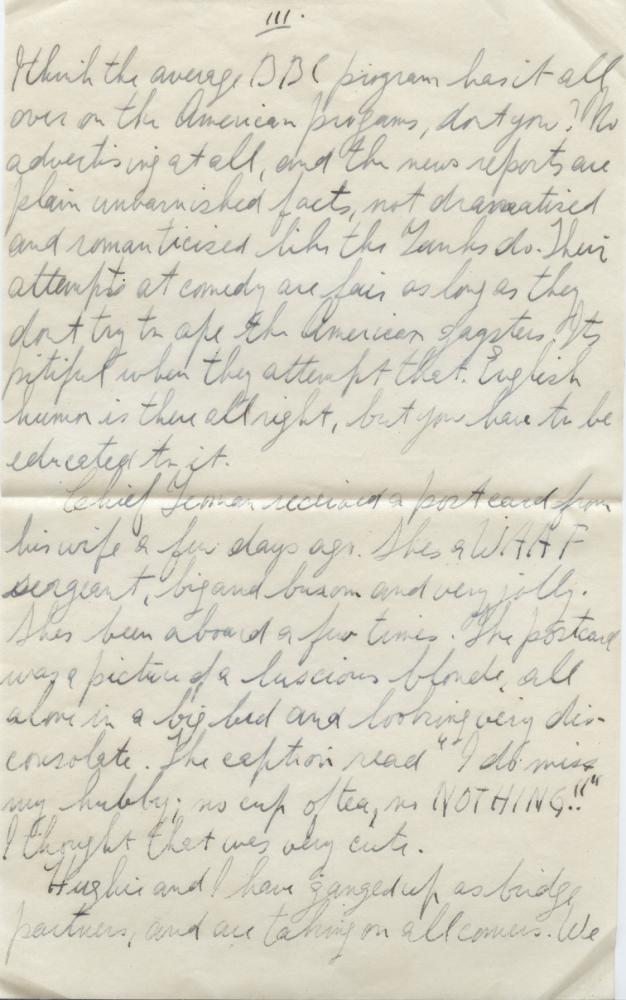 III.
I think the average BBC program has it all
over on the American progams, dont you? No
advertising at all, and the news reports are
plain unvarnished facts, not dramatised
and romanticised like the Yanks do. Their
attempts at comedy are fair as long as they
dont try to ape the American gagsters. Its
pitiful when they attempt that. English
humor is there allright, but you have to be
educated to it.
Chief Yeoman received a postcard from
his wife a few days ago. Shes a WAAF
sergeant, big and buxom and very jolly.
Shes been aboard a few times. The postcard
was a picture of a luscious blonde, all
alone in a big bed and looking very dis-
consolate. The caption read "I do miss
my hubby; no cup of tea, no NOTHING!!"
I thought that was very cute.
Hughie and I have ganged up as bridge
partners, and are taking on all comers. We